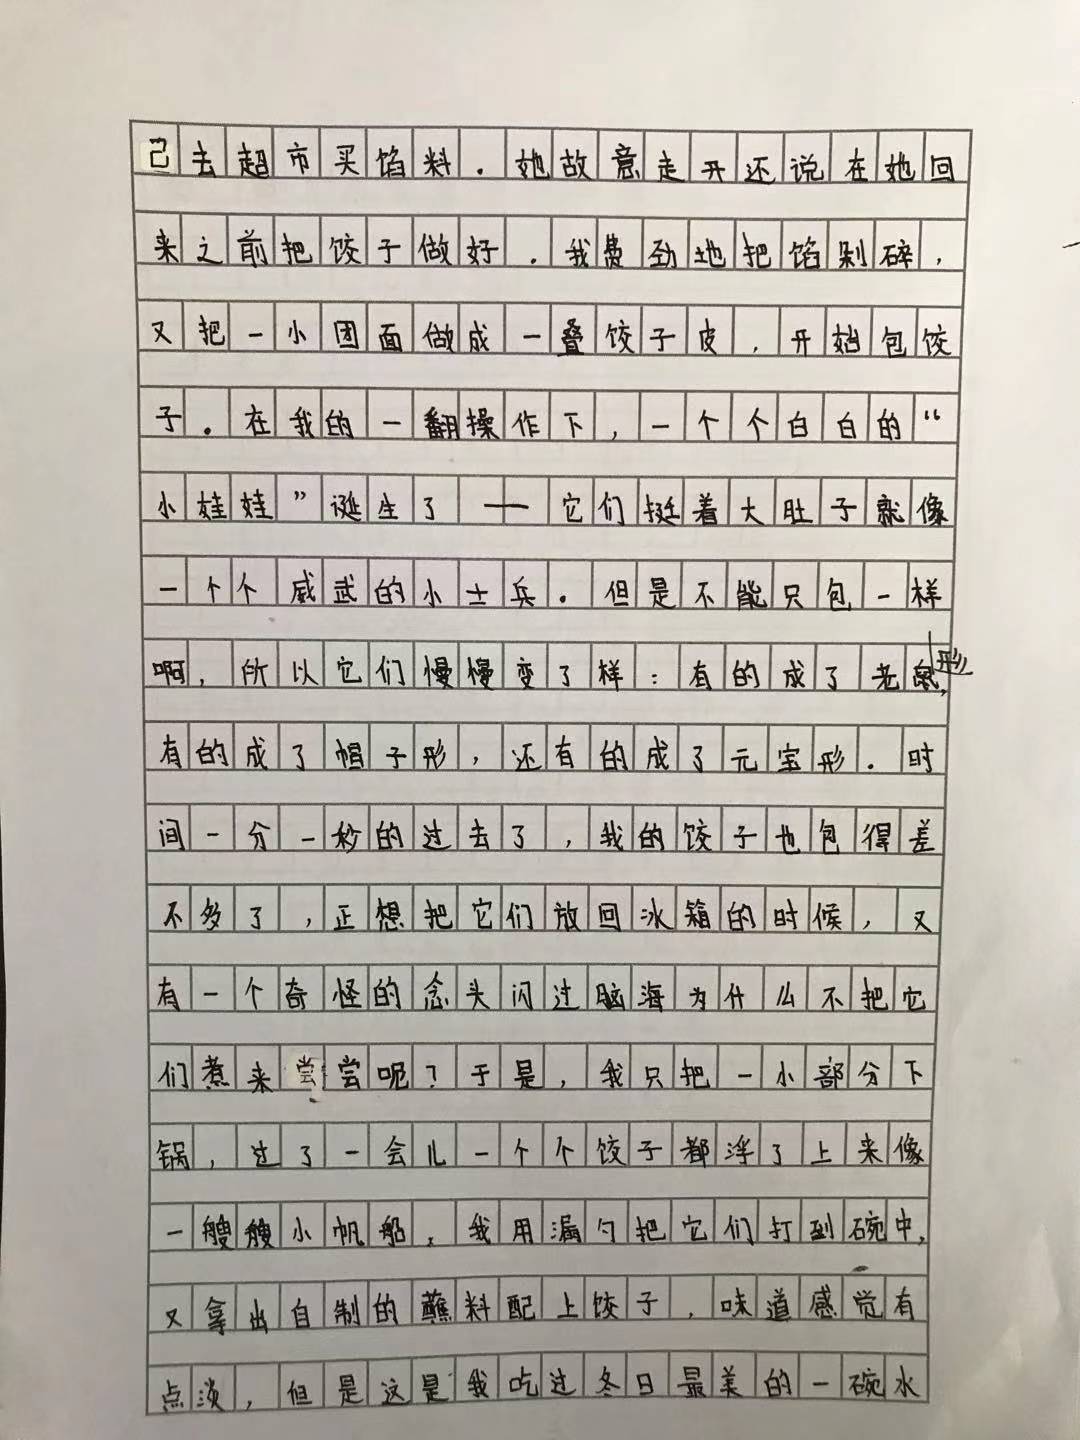 己去超市买馅料．她故意走开还说在她回
来之前把饺子做好．我费劲地把馅剁碎，
又把一小团面做成一叠饺子皮，开始包饺
子。在我的一翻操作下，一个个白白的“
小娃娃”诞生了——它们挺着大肚子就像
一个个威武的小士兵。但是不能只包一样
啊，所以它们慢慢变了样：有的成了老鼠形，
有的成了帽子形，还有的成了元宝形．时
间一分一秒的过去了，我的饺子也包得差
不多了，正想把它们放回冰箱的时候，又
有一个奇怪的念头闪过脑海为什么不把它
们煮来尝尝呢？于是，我只把一小部分下
锅，过了一会儿一个个饺子都浮了上来像
一艘艘小帆船，我用漏勺把它们打到碗中，
又拿出自制的蘸料配上饺子，味道感觉有
点淡，但是这是我吃过冬日最美的一碗水